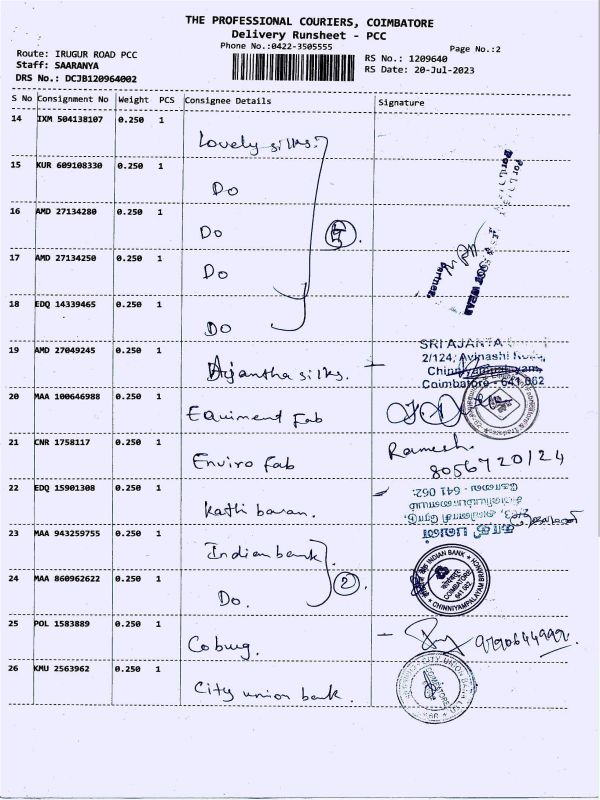 THE PROFESSIONAL COURIERS, COIMBATORE
Delivery Runsheet - PCC
Phone No.:0422-3505555
Page No.:2
Route: IRUGUR ROAD PCC
Staff: SAARANYA
DRS No.: DCJB120964002
RS No.: 1209640
RS Date: 20-Jul-2023
S No Consignment No Weight PCS Consignee Details Signature
14 IXM 504138107 0.250 1 Lovely silks.
15 KUR 609108330 0.250 1 Do
16 AMD 27134280 0.250 1 Do
17 AMD 27134250 0.250 1 Do
18 EDQ 14339465 0.250 1 Do
5
19 AMD 27049245 0.250 1 Ajantha silks.
SRI AJANTA
2/124, Avinashi
Chinniyampalayam,
Coimbatore - 641 062
20 MAA 100646988 0.250 1 Equiment Fab
21 CNR 1758117 0.250 1 Enviro fab Ramesh
8056720124
22 EDQ 15901308 0.250 1 Kathi bavan.
கோவை - 641 062.
23 MAA 943259755 0.250 1 Indian bank
24 MAA 860962622 0.250 1 Do.
2
INDIAN BANK
COIMBATORE
641 062
CHINNIYAMPALAYAM BRANCH
25 POL 1583889 0.250 1 Coburg. 9790644992.
26 KMU 2563962 0.250 1 City union bank.
CITY UNION BANK
COIMBATORE